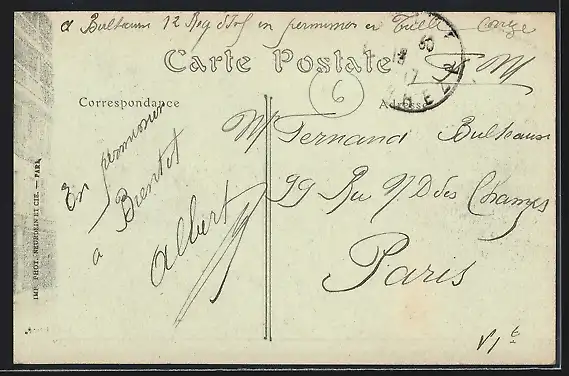 A Bulhaus 12 Reg d'Inf en permission a Tulle Corrèze
F M
Carte Postale
6
Correspondance
Adresse
En permission
a Bientot
Albert
Mr Fernand Bulhaus
99 Rue N D des Champs
Paris
IMP. PHOT. NEURDEIN ET CIE. — PARIS